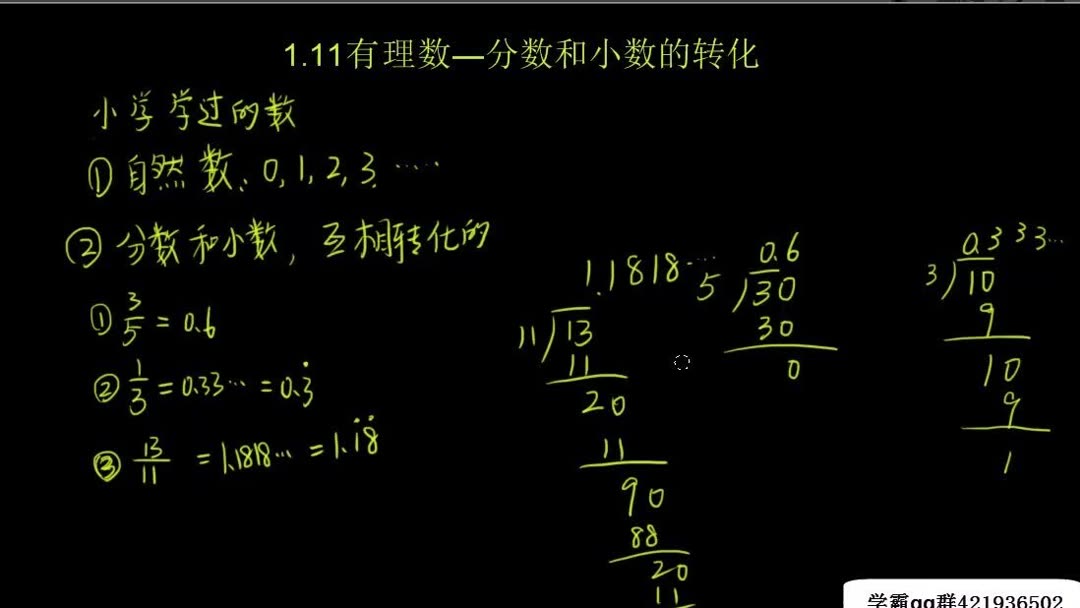 1.11有理数—分数和小数的转化
小学学过的数
①自然数、0,1,2,3.……
②分数和小数，互相转化的
① 3/5 = 0.6
② 1/3 = 0.33… = 0.3̇
③ 13/11 = 1.1818… = 1.1̇8̇
1.1818…
11)13
11
20
11
90
88
20
11
0.6
5)30
30
0
0.333…
3)10
9
10
9
1
学霸qq群421936502